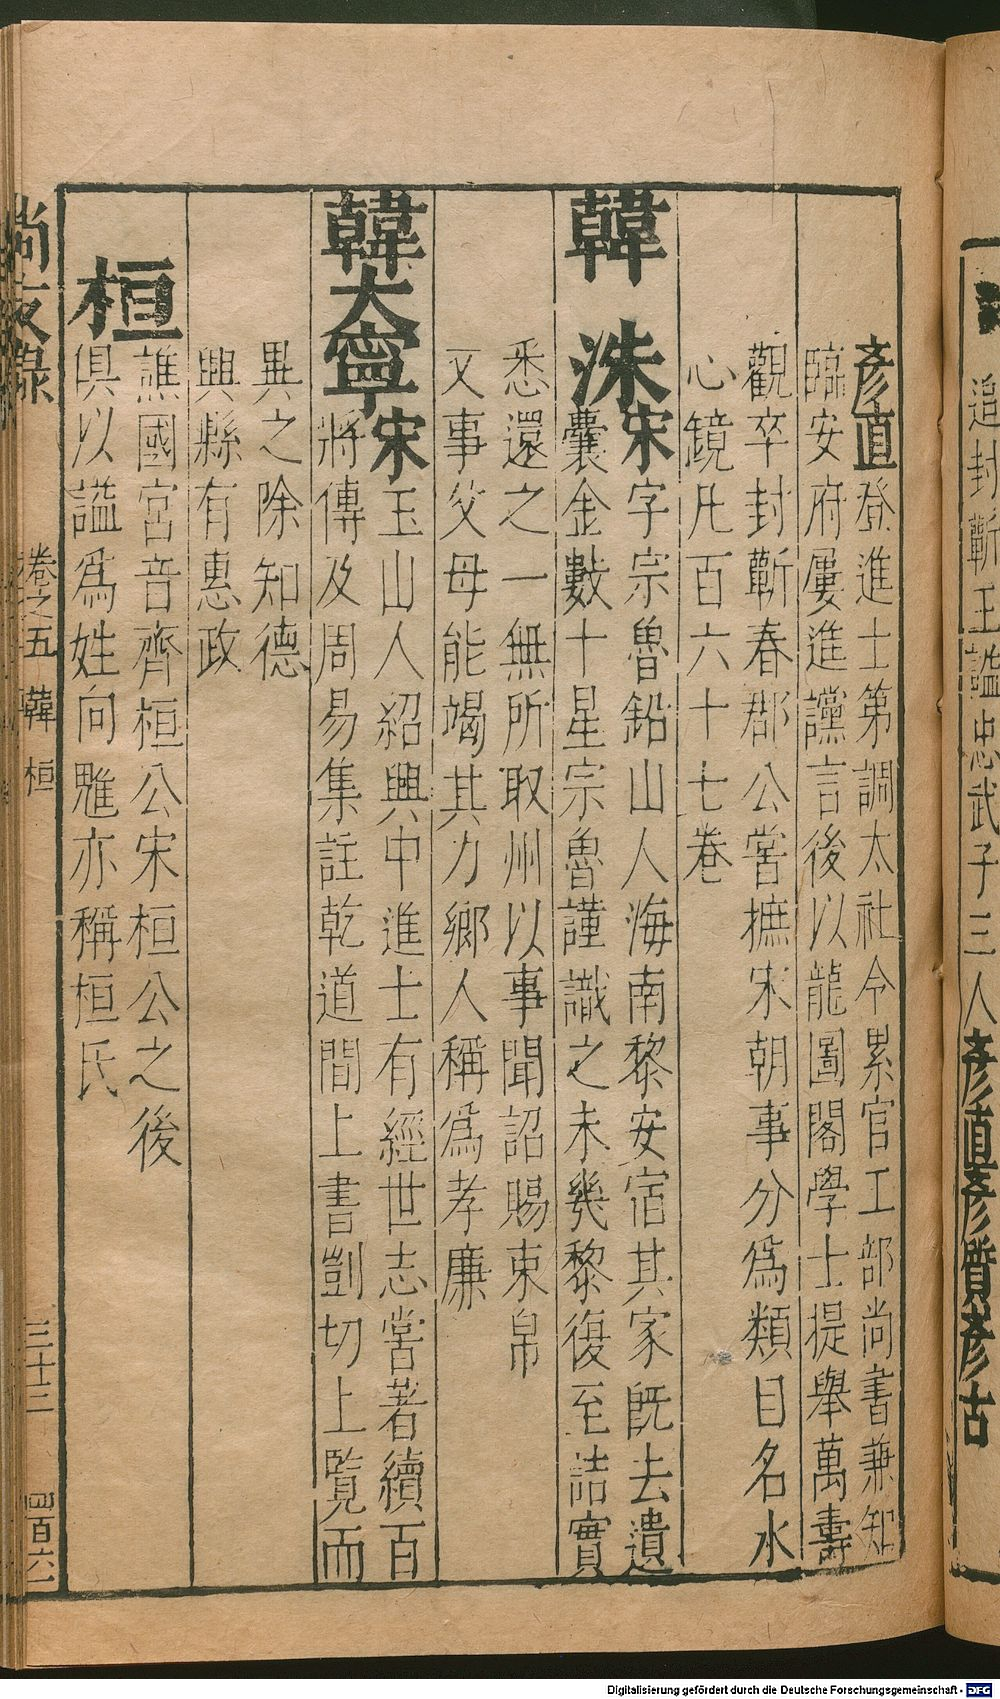 追封蘄王諡忠武子三人彥直彥質彥古
彥直登進士第調太社令累官工部尚書兼知
臨安府屢進讜言後以龍圖閣學士提舉萬壽
觀卒封蘄春郡公嘗摭宋朝事分爲類目名水
心鏡凡百六十七卷
韓洙宋字宗魯鉛山人海南黎安宿其家旣去遺
囊金數十星宗魯謹識之未幾黎復至詰實
悉還之一無所取州以事聞詔賜束帛
又事父母能竭其力鄉人稱爲孝廉
韓大寧宋玉山人紹興中進士有經世志嘗著續百
將傳及周易集註乾道間上書剴切上覽而
異之除知德
興縣有惠政
桓譙國宮音齊桓公宋桓公之後
俱以諡爲姓向魋亦稱桓氏
尚友錄 卷之五 韓 桓 三十三 四百六一
Digitalisierung gefördert durch die Deutsche Forschungsgemeinschaft - DFG